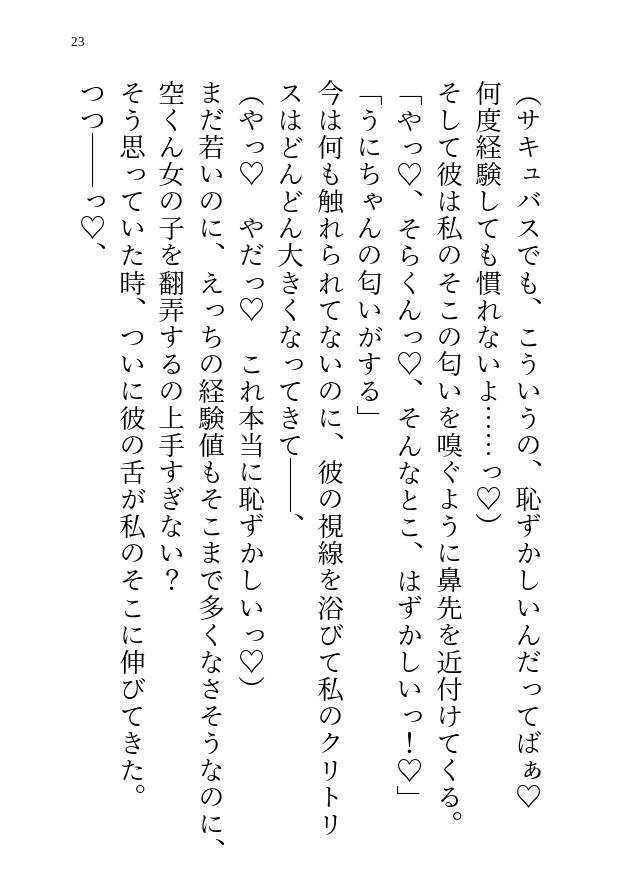 23
（サキュバスでも、こういうの、恥ずかしいんだってばぁ♡
何度経験しても慣れないよ……っ♡）
そして彼は私のそこの匂いを嗅ぐように鼻先を近付けてくる。
「やっ♡、そらくんっ♡、そんなとこ、はずかしいっ！♡」
「うにちゃんの匂いがする」
今は何も触れられてないのに、彼の視線を浴びて私のクリトリ
スはどんどん大きくなってきて――、
（やっ♡　やだっ♡　これ本当に恥ずかしいっ♡）
まだ若いのに、えっちの経験値もそこまで多くなさそうなのに、
空くん女の子を翻弄するの上手すぎない？
そう思っていた時、ついに彼の舌が私のそこに伸びてきた。
つつ――っ♡、